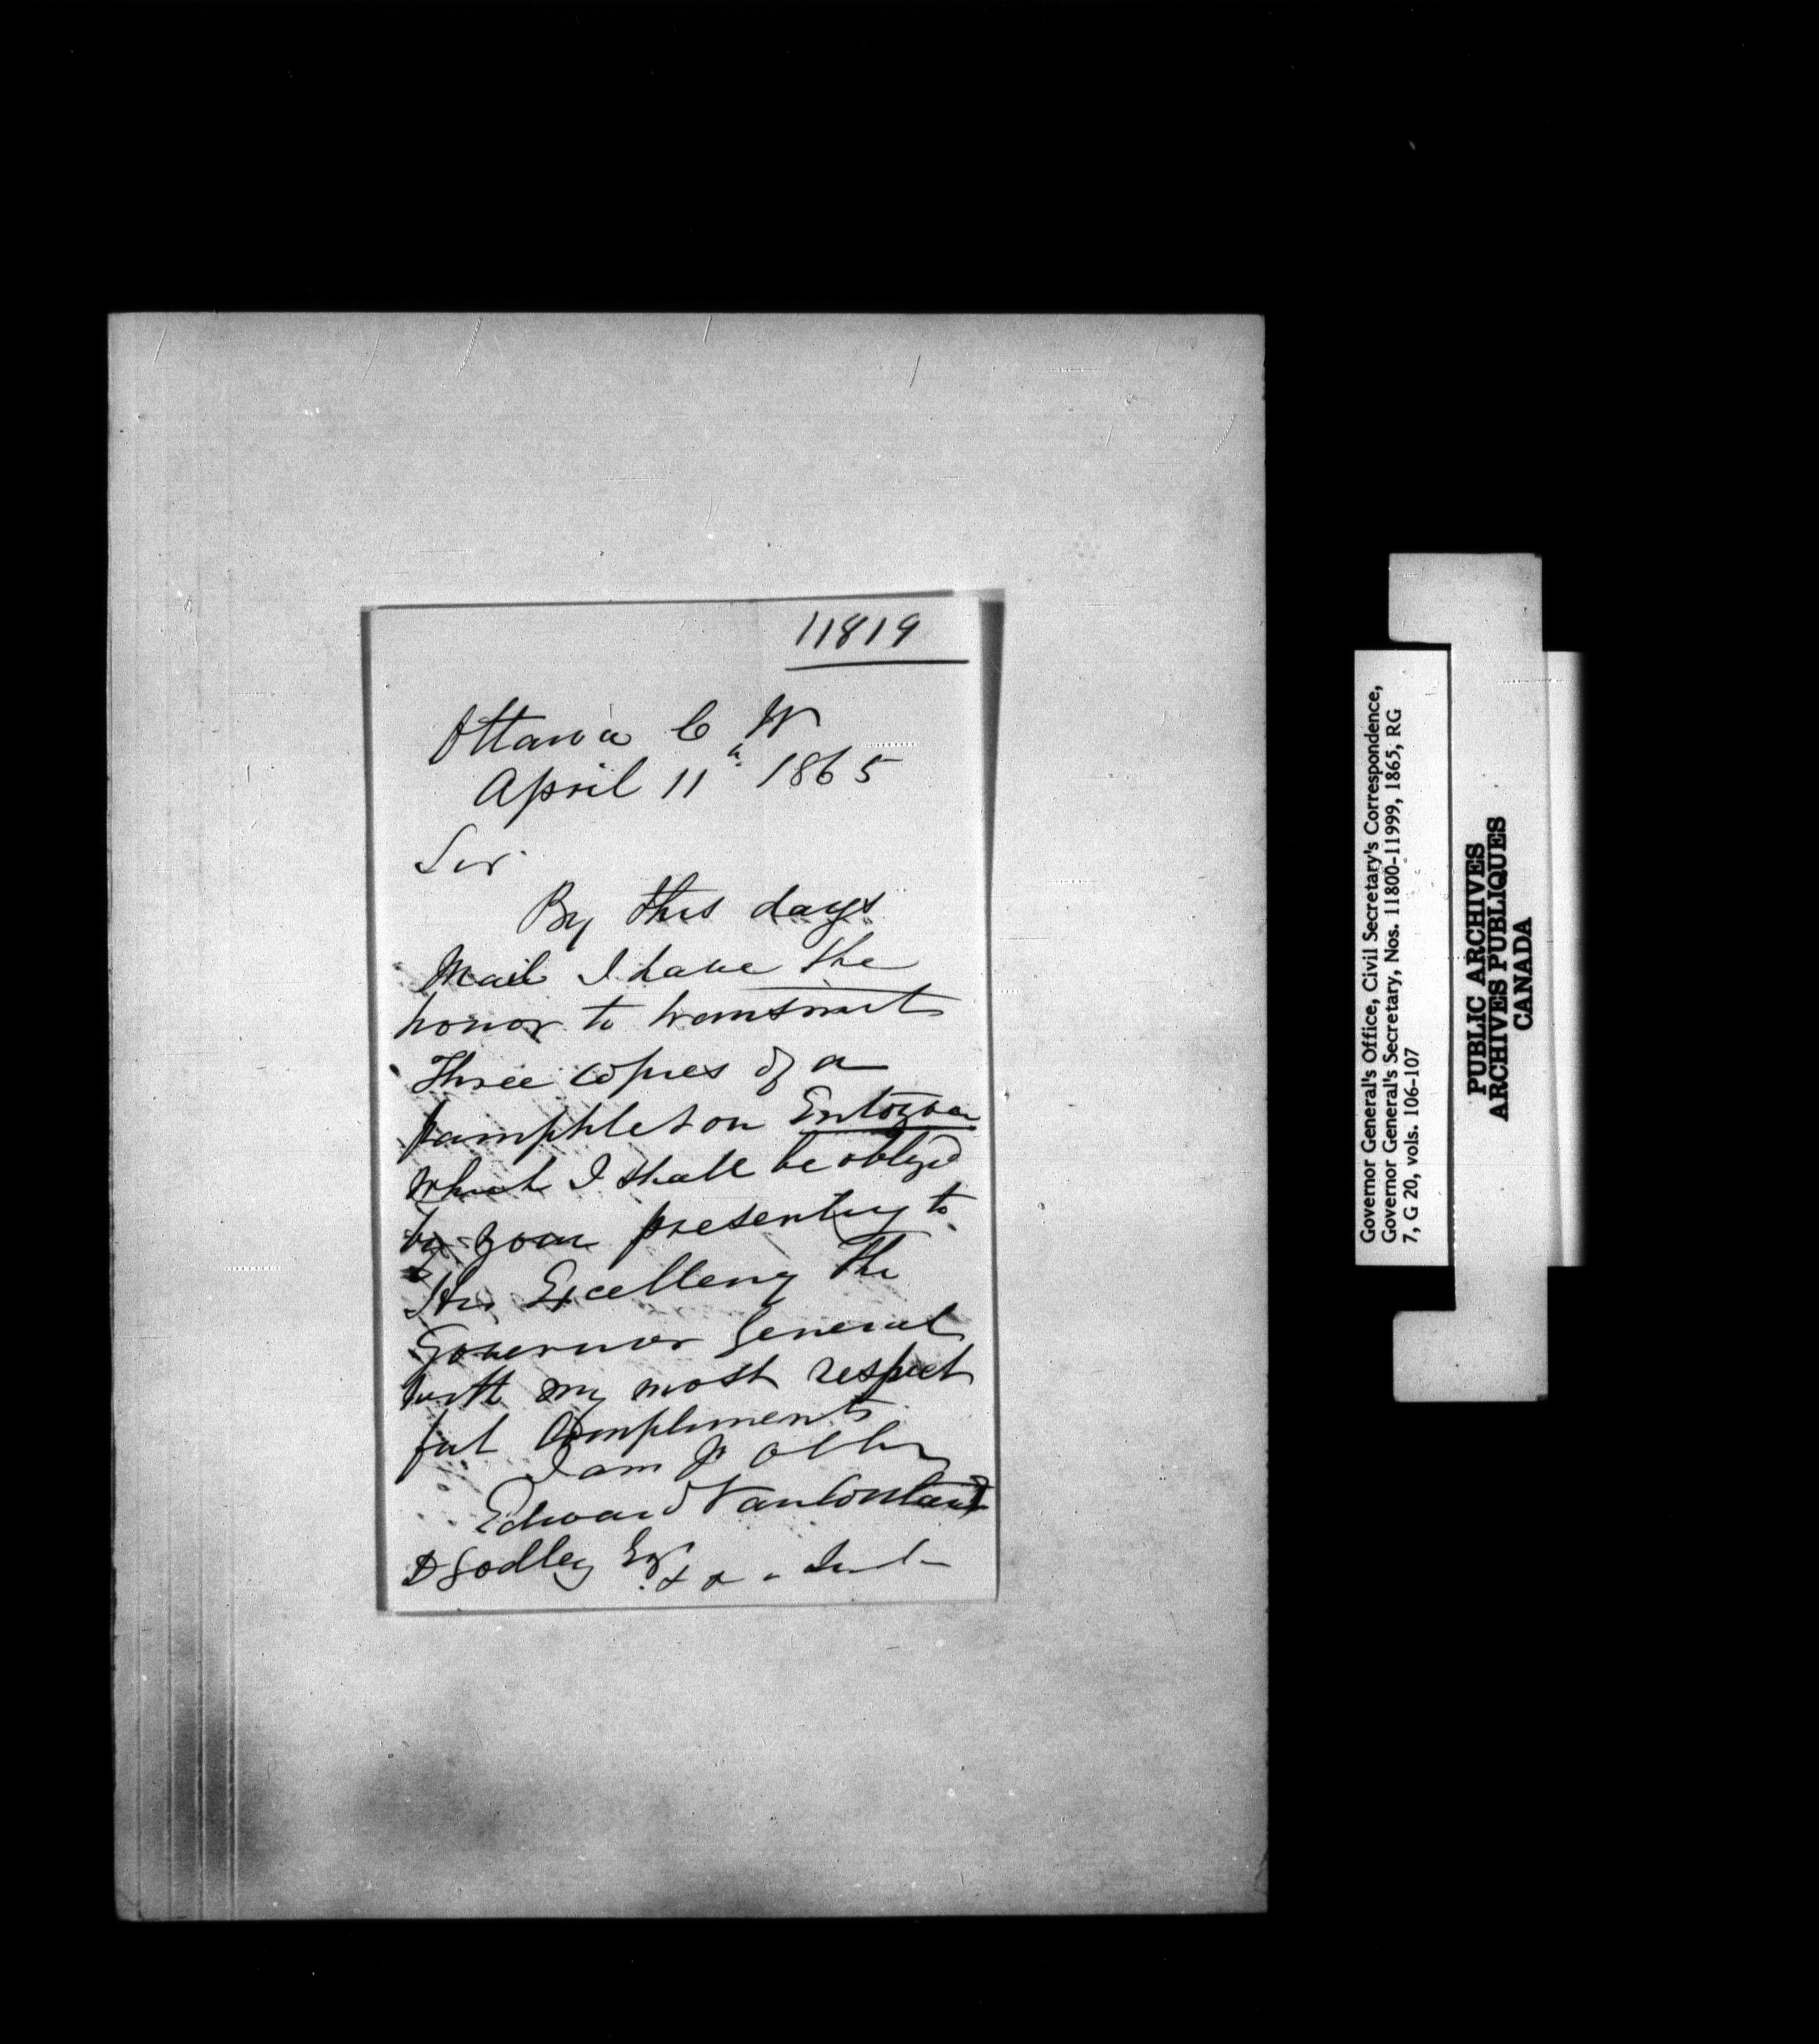 11819
Ottawa C W
April 11th 1865
Sir
By this days
Mail I have the
honor to transmit
Three copies of a
pamphlet on Entozoa
which I shall be obliged
by your presenting to
His Excellency The
Governor General
with my most respect
ful Compliments
I am Yr
Edward VanCortland
D Godley Esqr
Governor General's Office, Civil Secretary's Correspondence,
Governor General's Secretary, Nos. 11800-11999, 1865, RG
7, G 20, vols. 106-107
PUBLIC ARCHIVES
ARCHIVES PUBLIQUES
CANADA